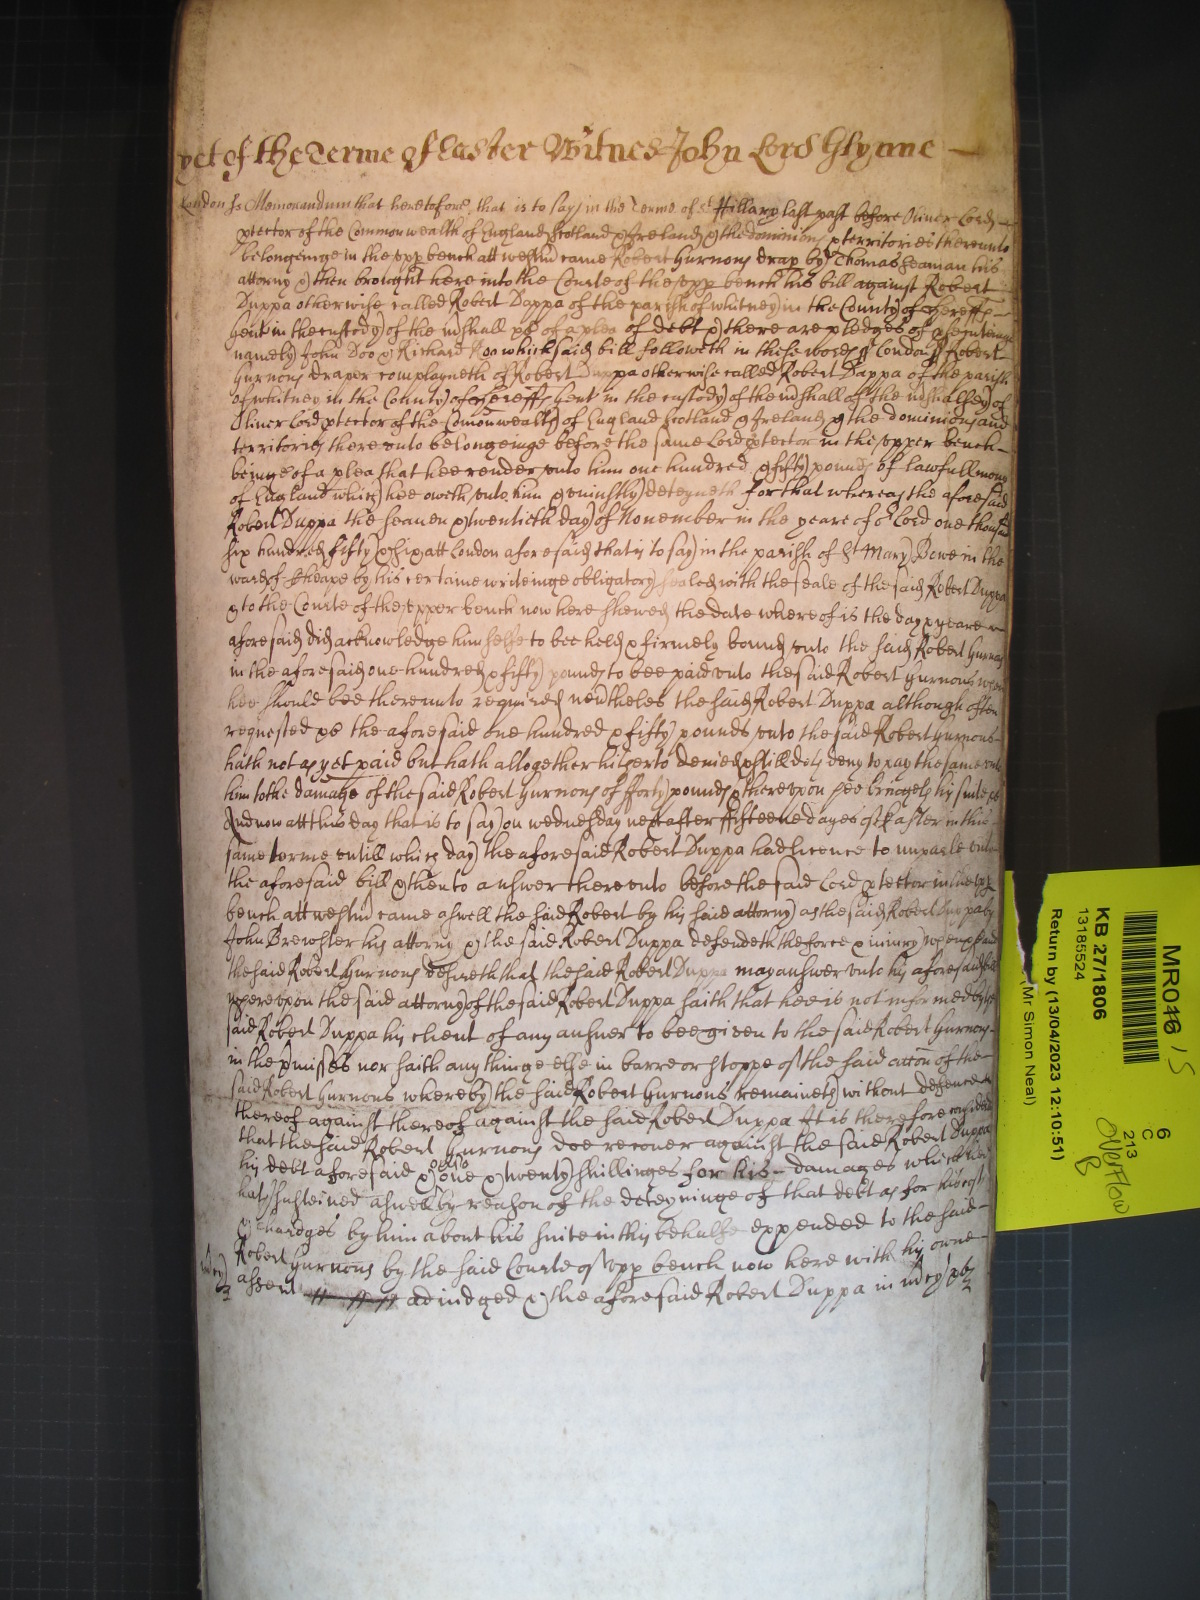 yet of the Terme of Easter Witnes John Lord Glynne
London ss Memorandum that heretofore that is to say in the Terme of St Hillary last past before Oliver Lord
ptector of the Commonwealth of England Scotland & Ireland & the dominions & territories thereunto
belongeinge in the upp bench att westm came Robert Gurnons drap by Thomas Seaman his
attorny & then brought here into the Courte of the upp bench his bill against Robert
Duppa otherwise called Robert Duppa of the parish of whitney in the County of Hereff
gent in the custody of the mshall &c of a plea of debt & there are pledges of
namely John Doo & Richard Roo which said bill followeth in these words ss London ss Robert
Gurnons draper complayneth of Robert Duppa otherwise called Robert Duppa of the parish
of whitney in the County of Hereff gent in the custody of the mshall of the mshalley of
Oliver Lord ptector of the Comonwealth of England Scotland & Ireland & the dominions and
territories thereunto belongeinge before the same Lord ptector in the upper bench
beinge of a plea that hee render unto him one hundred & fifty pounds of lawfull mony
of England which hee oweth unto him & uniustly deteyneth For that whereas the aforesaid
Robert Duppa the seauen & twentieth day of November in the yeare of or Lord one thousand
six hundred fifty & six att London aforesaid that is to say in the parish of St Mary Bowe in the
ward of Cheape by his certaine writeinge obligatory sealed with the seale of the said Robert Duppa
& to the Courte of the upper bench now here shewed the date whereof is the day & yeare
aforesaid did acknowledge himselfe to bee held & firmely bound unto the said Robert Gurnons
in the aforesaid one hundred & fifty pounds to bee paid unto the said Robert Gurnons when
hee should bee thereunto required nevtheles the said Robert Duppa although often
requested &c the aforesaid one hundred & fifty pounds unto the said Robert Gurnons
hath not as yet paid but hath altogether hitherto denied & still doth deny to pay the same unto
him to the damage of the said Robert Gurnons of fforty pounds & thereupon hee bringeth his suite &c
And now att this day that is to say on wednesday next after fifteene dayes of Easter in this
same terme untill which day the aforesaid Robert Duppa had licence to imparle unto
the aforesaid bill & then to answer thereunto before the said Lord ptector in the upp
bench att westm came aswell the said Robert by his said attorny as the said Robert Duppa by
John Brewster his attorny & the said Robert Duppa defendeth the force & iniury when &c and
the said Robert Gurnons desireth that the said Robert Duppa may answer unto his aforesaid bill
whereupon the said attorny of the said Robert Duppa saith that hee is not informed by the
said Robert Duppa his client of any answer to bee given to the said Robert Gurnons
in the pmisses nor saith any thinge else in barre or stoppe of the said accon of the
said Robert Gurnons whereby the said Robert Gurnons remaineth without defence
thereof against thereof against the said Robert Duppa It is therefore considered
that the said Robert Gurnons doe recouer against the said Robert Duppa
his debt aforesaid & one & twenty shillinges for his damages which hee
hath susteined aswell by reason of the deteyninge of that debt as for his costs
& chardges by him about his suite in this behalfe expended to the said
Robert Gurnons by the said Courte of upp bench now here with his owne
assent adiudged & the aforesaid Robert Duppa in mcy &c
MR046
KB 27/1806
13185524
Return by (13/04/2023 12:10:51)
(Mr Simon Neal)
6
C
213
Overflow
B